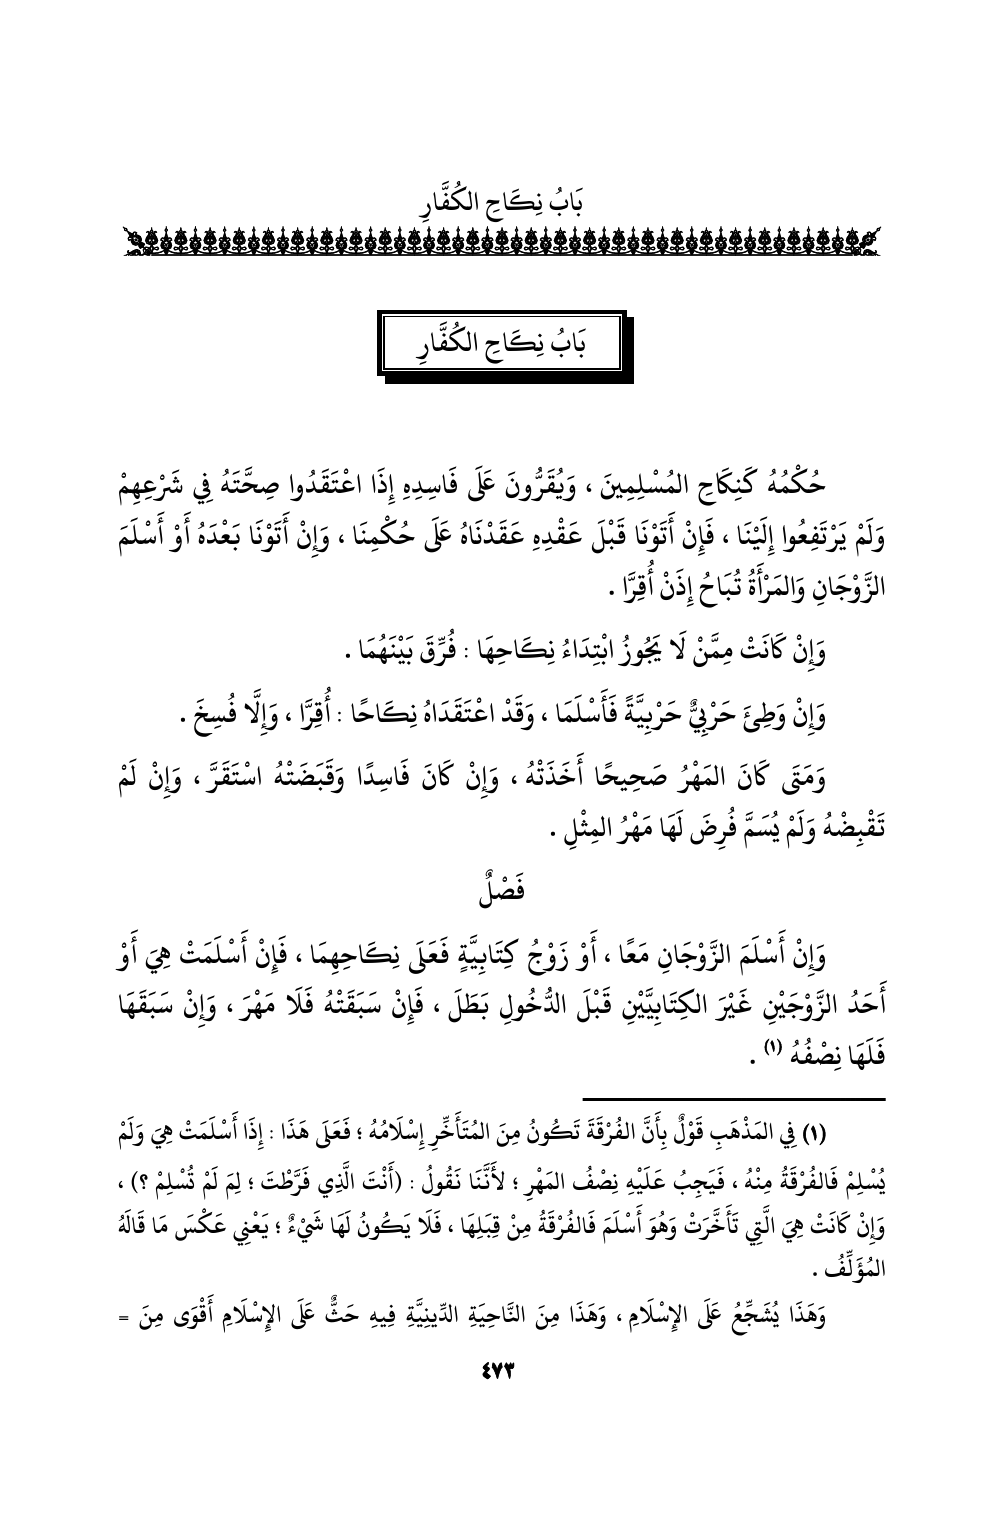 بَابُ نِكَاحِ الكُفَّارِ
بَابُ نِكَاحِ الكُفَّارِ
حُكْمُهُ كَنِكَاحِ المُسْلِمِينَ ، وَيُقَرُّونَ عَلَى فَاسِدِهِ إِذَا اعْتَقَدُوا صِحَّتَهُ فِي شَرْعِهِمْ
وَلَمْ يَرْتَفِعُوا إِلَيْنَا ، فَإِنْ أَتَوْنَا قَبْلَ عَقْدِهِ عَقَدْنَاهُ عَلَى حُكْمِنَا ، وَإِنْ أَتَوْنَا بَعْدَهُ أَوْ أَسْلَمَ
الزَّوْجَانِ وَالمَرْأَةُ تُبَاحُ إِذَنْ أُقِرَّا .
وَإِنْ كَانَتْ مِمَّنْ لَا يَجُوزُ ابْتِدَاءُ نِكَاحِهَا : فُرِّقَ بَيْنَهُمَا .
وَإِنْ وَطِئَ حَرْبِيٌّ حَرْبِيَّةً فَأَسْلَمَا ، وَقَدْ اعْتَقَدَاهُ نِكَاحًا : أُقِرَّا ، وَإِلَّا فُسِخَ .
وَمَتَى كَانَ المَهْرُ صَحِيحًا أَخَذَتْهُ ، وَإِنْ كَانَ فَاسِدًا وَقَبَضَتْهُ اسْتَقَرَّ ، وَإِنْ لَمْ
تَقْبِضْهُ وَلَمْ يُسَمَّ فُرِضَ لَهَا مَهْرُ المِثْلِ .
فَصْلٌ
وَإِنْ أَسْلَمَ الزَّوْجَانِ مَعًا ، أَوْ زَوْجُ كِتَابِيَّةٍ فَعَلَى نِكَاحِهِمَا ، فَإِنْ أَسْلَمَتْ هِيَ أَوْ
أَحَدُ الزَّوْجَيْنِ غَيْرَ الكِتَابِيَّيْنِ قَبْلَ الدُّخُولِ بَطَلَ ، فَإِنْ سَبَقَتْهُ فَلَا مَهْرَ ، وَإِنْ سَبَقَهَا
فَلَهَا نِصْفُهُ (١) .
(١) فِي المَذْهَبِ قَوْلٌ بِأَنَّ الفُرْقَةَ تَكُونُ مِنَ المُتَأَخِّرِ إِسْلَامُهُ ؛ فَعَلَى هَذَا : إِذَا أَسْلَمَتْ هِيَ وَلَمْ
يُسْلِمْ فَالفُرْقَةُ مِنْهُ ، فَيَجِبُ عَلَيْهِ نِصْفُ المَهْرِ ؛ لأَنَّنَا نَقُولُ : (أَنْتَ الَّذِي فَرَّطْتَ ؛ لِمَ لَمْ تُسْلِمْ ؟) ،
وَإِنْ كَانَتْ هِيَ الَّتِي تَأَخَّرَتْ وَهُوَ أَسْلَمَ فَالفُرْقَةُ مِنْ قِبَلِهَا ، فَلَا يَكُونُ لَهَا شَيْءٌ ؛ يَعْنِي عَكْسَ مَا قَالَهُ
المُؤَلِّفُ .
وَهَذَا يُشَجِّعُ عَلَى الإِسْلَامِ ، وَهَذَا مِنَ النَّاحِيَةِ الدِّينِيَّةِ فِيهِ حَثٌّ عَلَى الإِسْلَامِ أَقْوَى مِنَ =
٤٧٣